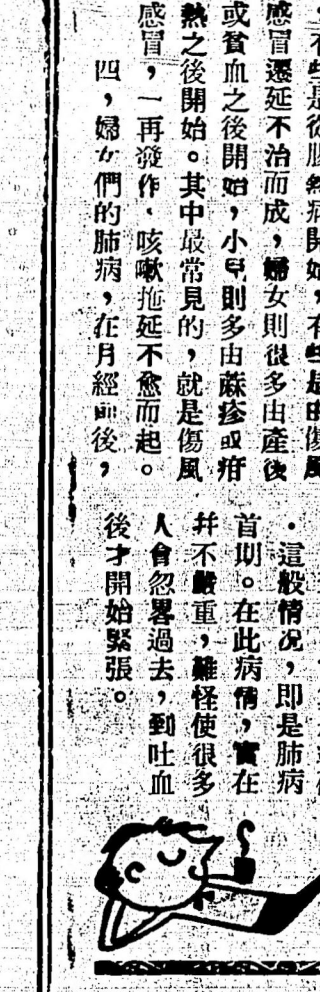 ，有些是從腸熱病開始，有些是由傷風
感冒遷延不治而成，婦女則很多由產後
或貧血之後開始，小兒則多由蔴疹或疳
熱之後開始。其中最常見的，就是傷風
感冒，一再發作，咳嗽拖延不愈而起。
四，婦女們的肺病，在月經前後，
．這般情况，即是肺病
首期。在此病情，實在
并不嚴重，難怪使很多
人會忽畧過去，到吐血
後才開始緊張。